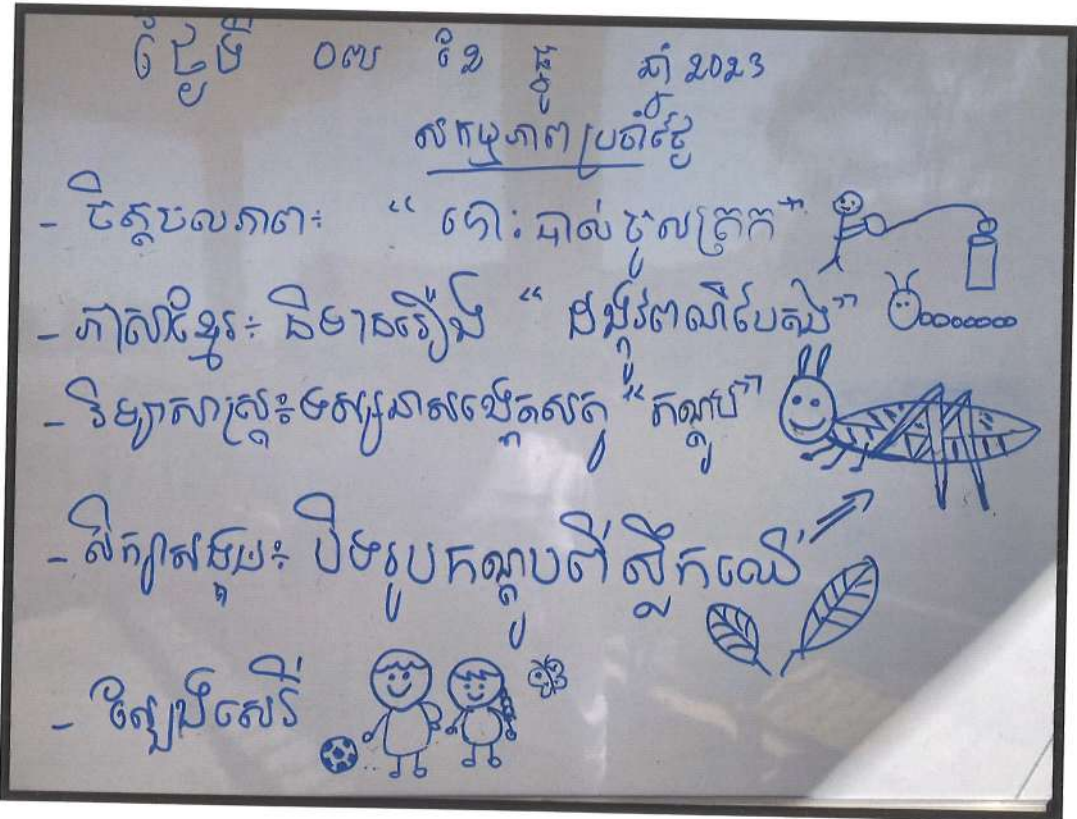 ថ្ងៃទី ០៧ ខែ ធ្នូ ឆ្នាំ 2023
សកម្មភាពប្រចាំថ្ងៃ
- ចិត្តចលភាព៖ “ បោះបាល់ចូលត្រក”
- ភាសាខ្មែរ៖ និទានរឿង “ ដង្កូវពណ៌បៃតង”
- វិទ្យាសាស្ត្រ៖ ទស្សនាសង្កេតសត្វ “កណ្តូប”
- សិក្សាសង្គម៖ បិទរូបកណ្តូបពីស្លឹកឈើ
- ល្បែងសេរី